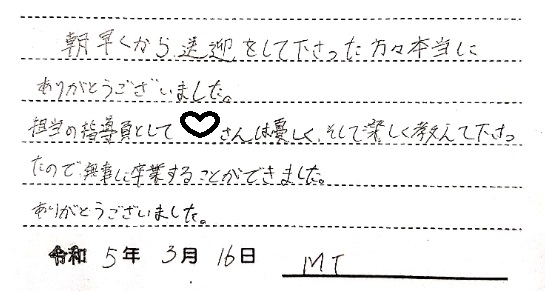 朝早くから送迎をして下さった方々本当に
ありがとうございました。
担当の指導員として♡さんは優しく、そして楽しく教えて下さっ
たので無事に卒業することができました。
ありがとうございました。
令和 5年 3月 16日 MT